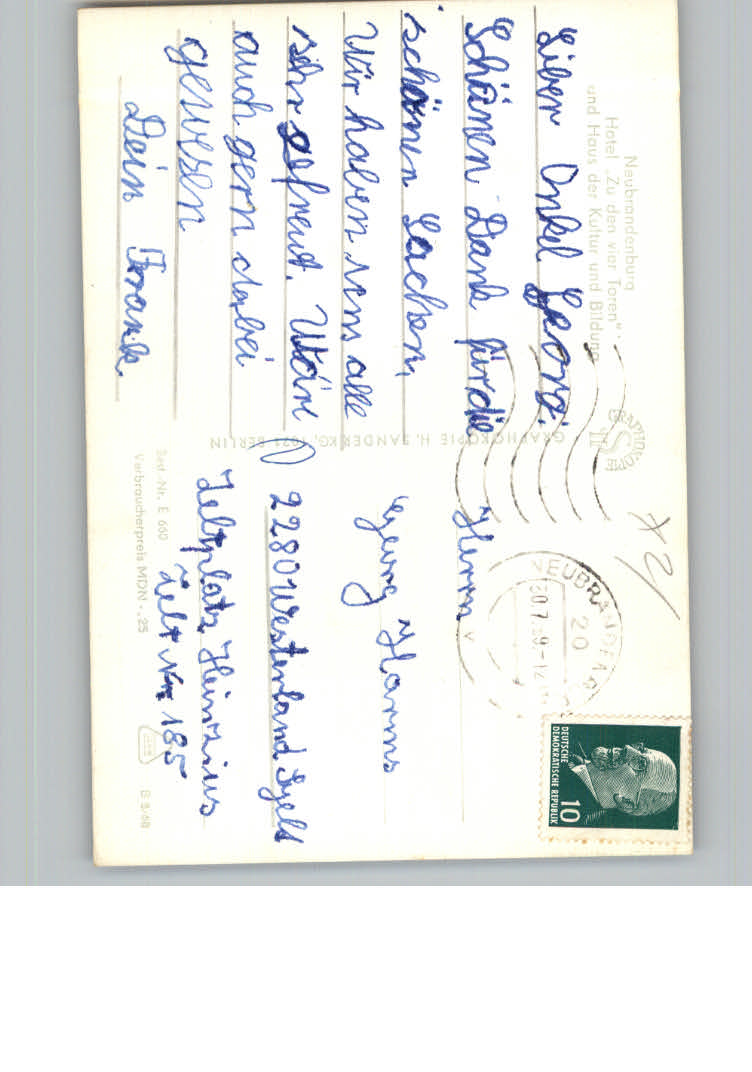 Neubrandenburg
Hotel „Zu den vier Toren"
und Haus der Kultur und Bildung
Lieber Onkel Georg.
Schönen Dank für die
schönen Sachen,
Wir haben uns alle
sehr gefreut. Wäre
auch gern dabei
gewesen
Dein Frank.
GRAPHOKOPIE H. SANDER KG, 1071 BERLIN
GRAPHOKOPIE
S
Best.-Nr. E 660
Verbraucherpreis MDN -.25
B 3/68
Herrn
Georg Harms
2280 Westerland Sylt
Zeltplatz
Zelt Nr. 185
NEUBRANDENB
20
DEUTSCHE
DEMOKRATISCHE REPUBLIK
10